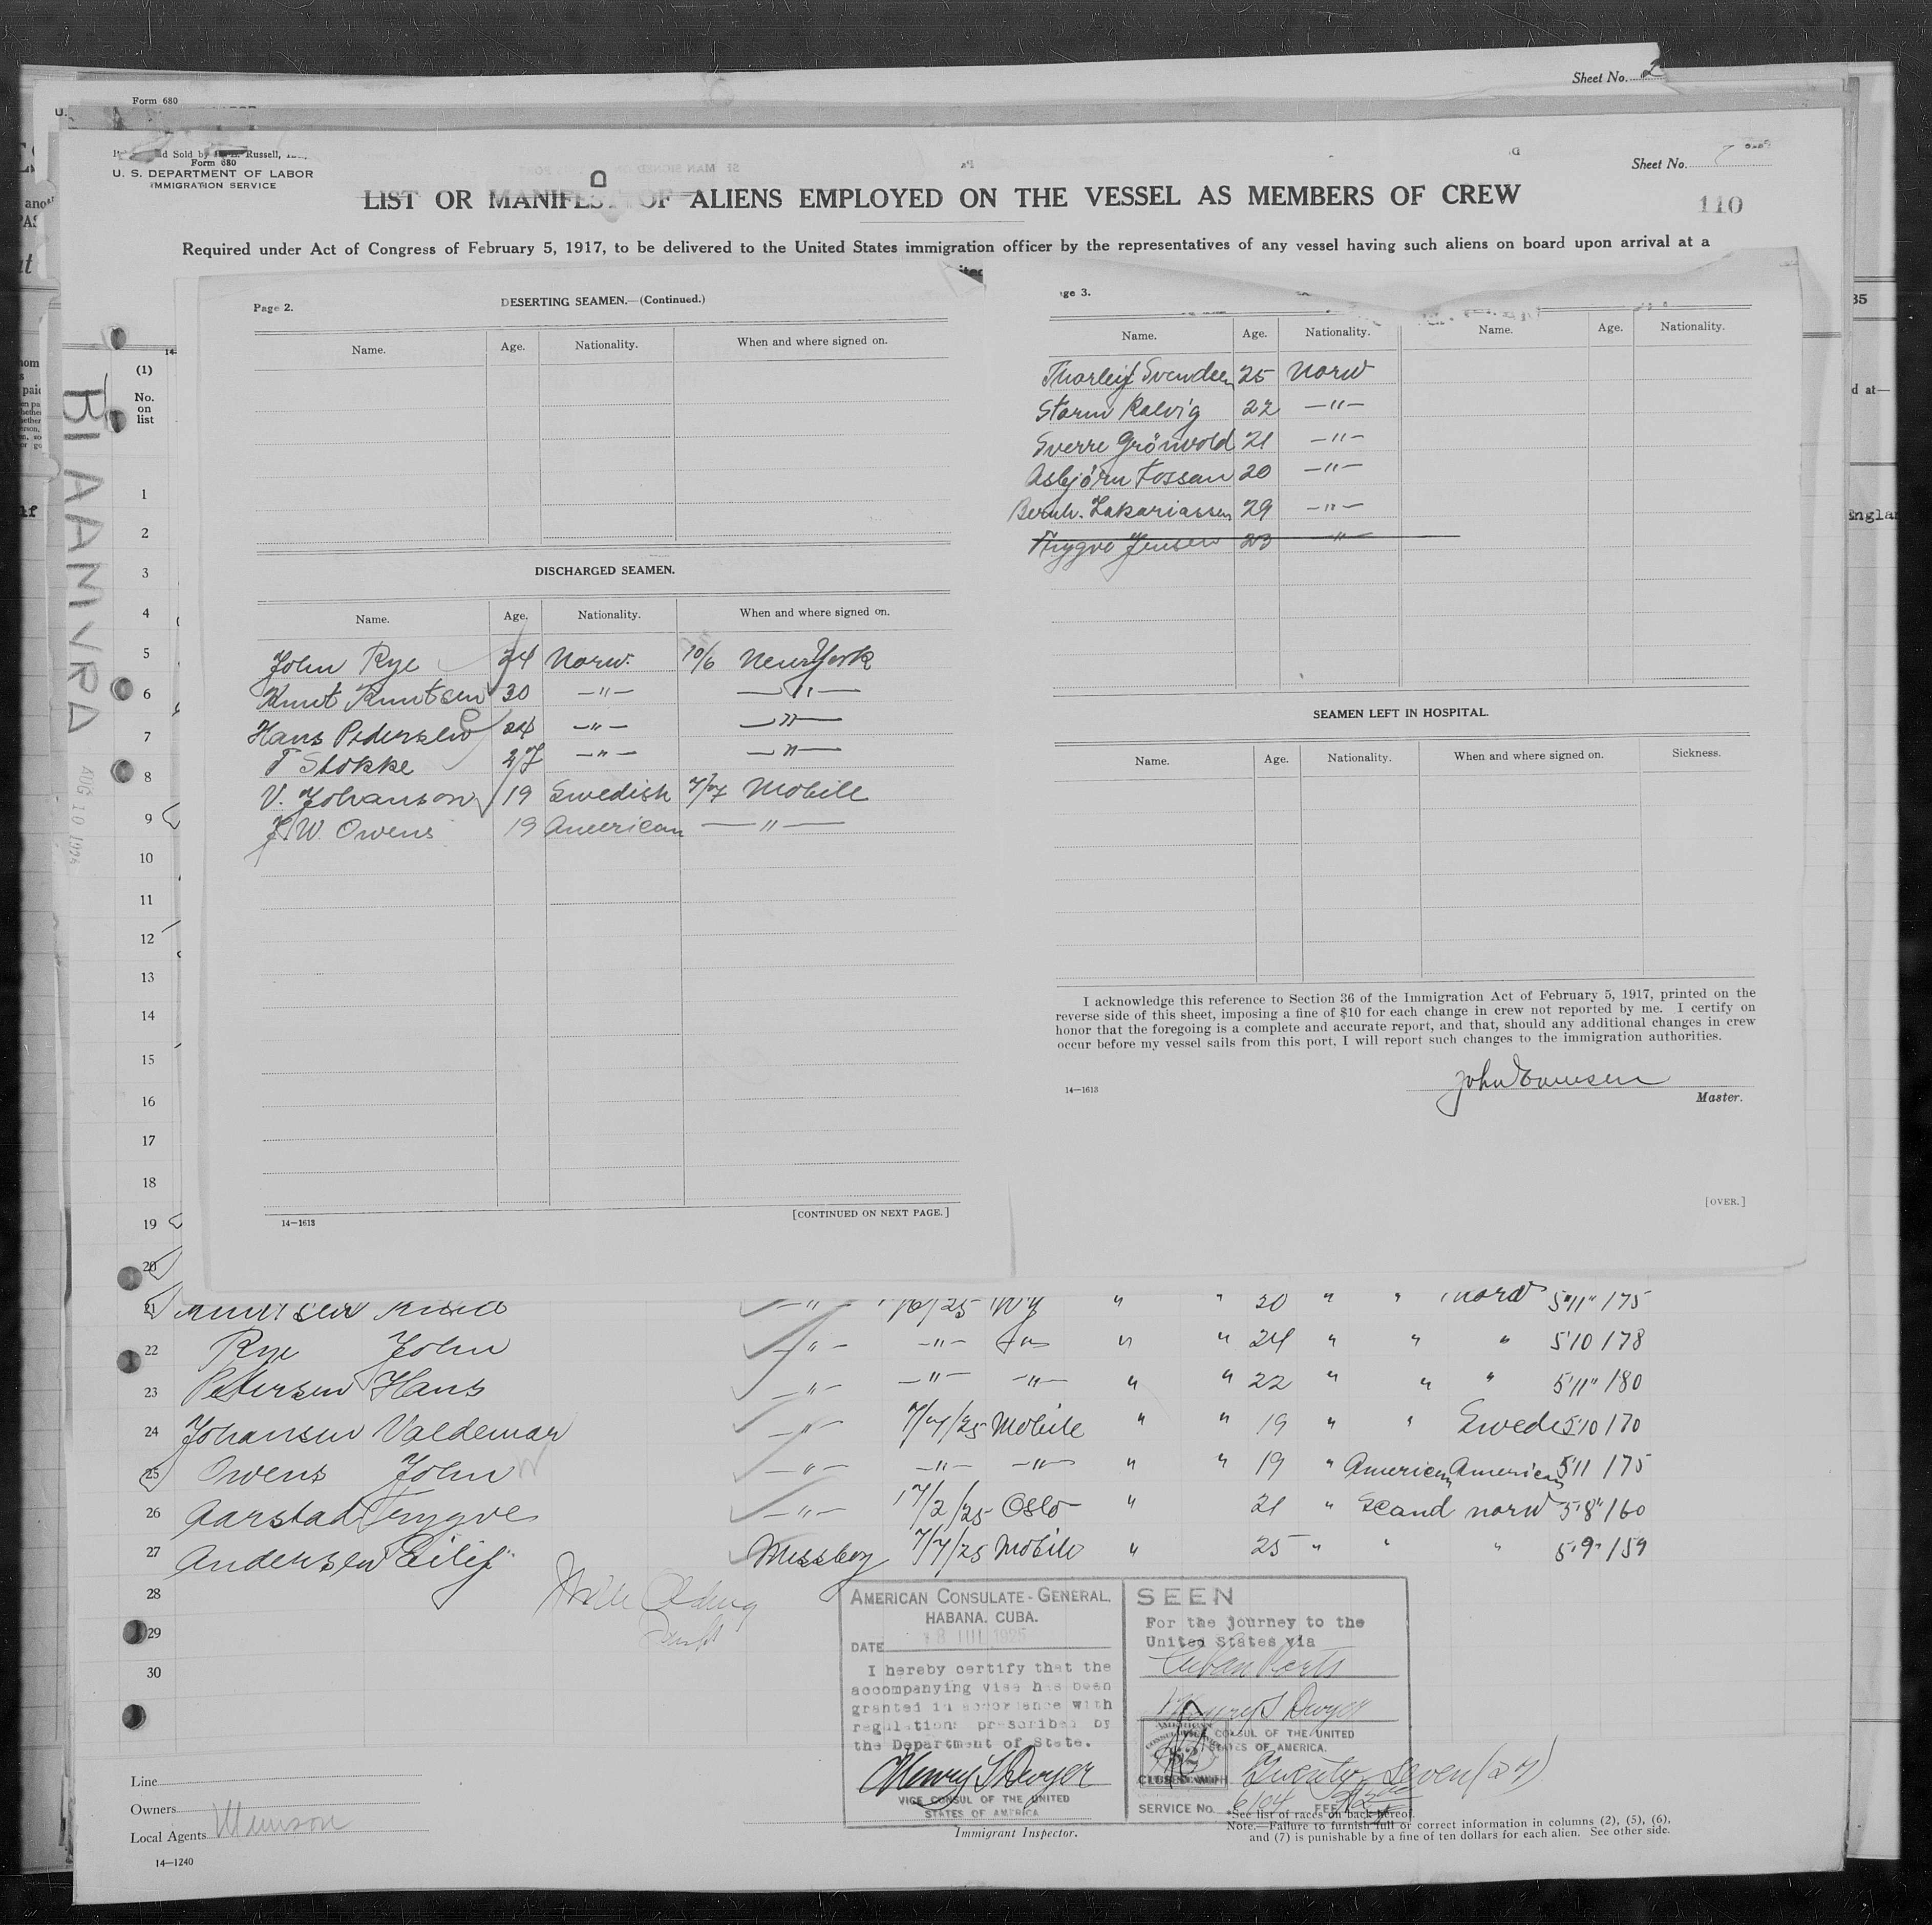 Sheet No. 2
Form 680
Sold by Russell,
Form 680
U. S. DEPARTMENT OF LABOR
IMMIGRATION SERVICE
Sheet No.
LIST OR MANIFEST OF ALIENS EMPLOYED ON THE VESSEL AS MEMBERS OF CREW
110
Required under Act of Congress of February 5, 1917, to be delivered to the United States immigration officer by the representatives of any vessel having such aliens on board upon arrival at a
BLAAMVRA
AUG 10
(1)
No.
on
list
1
2
3
4
5
6
7
8
9
10
11
12
13
14
15
16
17
18
19
20
Page 2.
DESERTING SEAMEN.—(Continued.)
Name. Age. Nationality. When and where signed on.
DISCHARGED SEAMEN.
Name. Age. Nationality. When and where signed on.
John Rye 24 Norw. 10/6 New York
Knut Knutsen 30 —"— —"—
Hans Pedersen 24 —"— —"—
T Stokke 27 —"— —"—
V. Johanson 19 Swedish 7/7 Mobile
J. W. Owens 19 American —"—
14—1613
[CONTINUED ON NEXT PAGE.]
ge 3.
Name. Age. Nationality. Name. Age. Nationality.
Thorleif Svendsen 25 Norw
Storm Kalvig 22 —"—
Sverre Grönvold 21 —"—
Asbjörn Fossan 20 —"—
Bernh. Zakariassen 29 —"—
Trygve Jensen 23 —"—
SEAMEN LEFT IN HOSPITAL.
Name. Age. Nationality. When and where signed on. Sickness.
I acknowledge this reference to Section 36 of the Immigration Act of February 5, 1917, printed on the
reverse side of this sheet, imposing a fine of $10 for each change in crew not reported by me. I certify on
honor that the foregoing is a complete and accurate report, and that, should any additional changes in crew
occur before my vessel sails from this port, I will report such changes to the immigration authorities.
14—1613
Master.
[OVER.]
21 —"— " " 30 " " norw 5'11" 175
22 Rye John —"— —"— " " 24 " " " 5'10 178
23 Petersen Hans —"— —"— —"— " " 22 " " " 5'11" 180
24 Johansen Valdemar —"— 7/7/25 Mobile " " 19 " " Swede 5'10 170
25 Owens John W —"— —"— —"— " " 19 " American American 5'11 175
26 Aarstad Trygve —"— 17/2/25 Oslo " 21 " Scand norw 5'8" 160
27 Andersen Eilif Messboy 7/7/25 Mobile " 25 " " " 5'9" 159
28
29
30
AMERICAN CONSULATE-GENERAL,
HABANA, CUBA.
DATE 1925
I hereby certify that the
accompanying visa has been
granted in accordance with
regulations prescribed by
the Department of State.
Henry T Dwyer
VICE CONSUL OF THE UNITED
STATES OF AMERICA
SEEN
For the journey to the
United States via
Cuban Ports
CONSUL OF THE UNITED
STATES OF AMERICA.
Twenty Seven (27)
SERVICE No. 6104 FEE
Line
Owners
Local Agents Munson
14—1240
Immigrant Inspector.
*See list of races on back hereof.
Note.—Failure to furnish full or correct information in columns (2), (5), (6),
and (7) is punishable by a fine of ten dollars for each alien. See other side.